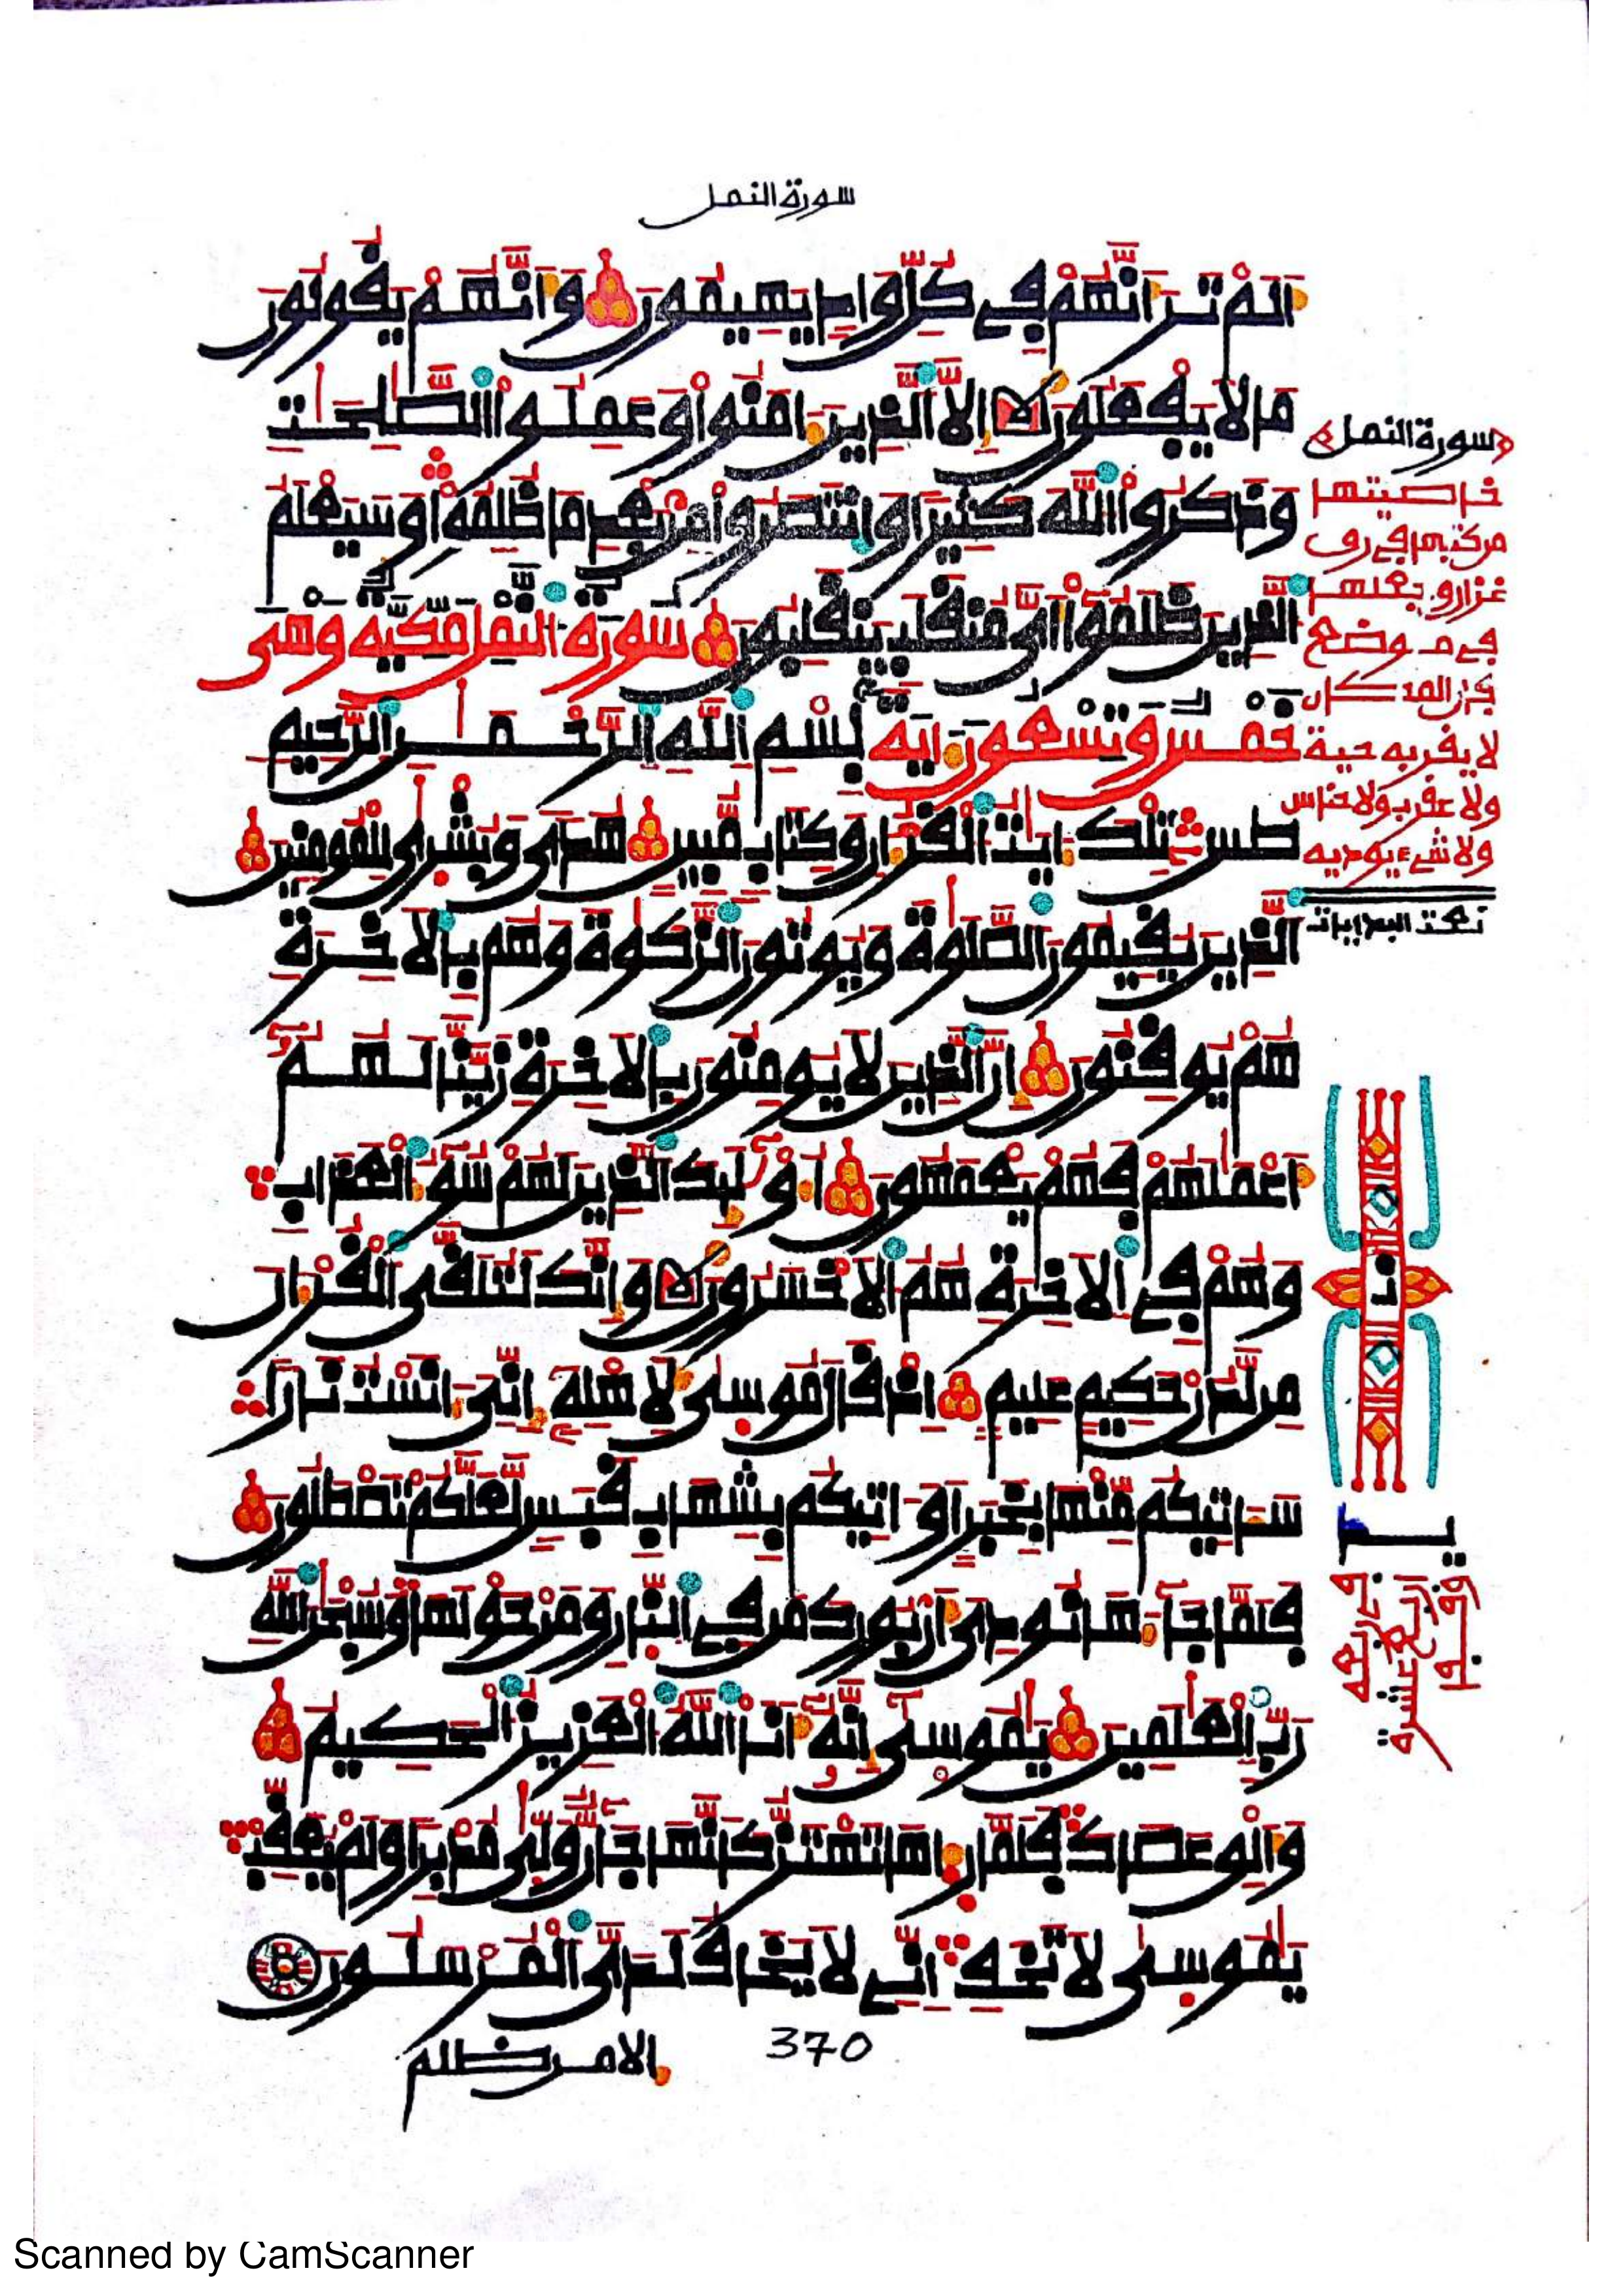 سورة النمل
اَلَمْ تَرَ اَنَّهُمْ فِے كُلِّ وَادٖ يَهِيمُونَ وَاَنَّهُمْ يَقُولُونَ
مَا لَا يَفْعَلُونَ اِلَّا اَ۬لذِينَ ءَامَنُواْ وَعَمِلُواْ اُ۬لصَّٰلِحَٰتِ
وَذَكَرُواْ اُ۬للَّهَ كَثِيراٗ وَانتَصَرُواْ مِنۢ بَعْدِ مَا ظُلِمُواْ وَسَيَعْلَمُ
اُ۬لذِينَ ظَلَمُواْ أَيَّ مُنقَلَبٖ يَنقَلِبُونَ سُورَةُ النَّمْلِ مَكِّيَّةٌ وَهْيَ
خَمْسٌ وَتِسْعُونَ ءَايَةً بِسْمِ اِ۬للَّهِ اِ۬لرَّحْمَٰنِ اِ۬لرَّحِيمِ
طسٓ تِلْكَ ءَايَٰتُ اُ۬لْقُرْءَانِ وَكِتَابٖ مُّبِينٖ هُديٗ وَبُشْر۪يٰ لِلْمُومِنِينَ
اَ۬لذِينَ يُقِيمُونَ اَ۬لصَّلَوٰةَ وَيُوتُونَ اَ۬لزَّكَوٰةَ وَهُم بِالَاخِرَةِ
هُمْ يُوقِنُونَ اِنَّ اَ۬لذِينَ لَا يُومِنُونَ بِالَاخِرَةِ زَيَّنَّا لَهُمُۥٓ
أَعْمَٰلَهُمْ فَهُمْ يَعْمَهُونَ أُوْلَٰٓئِكَ اَ۬لذِينَ لَهُمْ سُوٓءُ اُ۬لْعَذَابِ
وَهُمْ فِے اِ۬لَاخِرَةِ هُمُ اُ۬لَاخْسَرُونَ وَإِنَّكَ لَتُلَقَّي اَ۬لْقُرْءَانَ
مِن لَّدُنْ حَكِيمٍ عَلِيمٍ اِذْ قَالَ مُوس۪يٰ لِأَهْلِهِۦٓ إِنِّيَ ءَانَسْتُ نَاراٗ
سَـَٔاتِيكُم مِّنْهَا بِخَبَرٍ اَوَ اٰتِيكُم بِشِهَابِ قَبَسٖ لَّعَلَّكُمْ تَصْطَلُونَ
فَلَمَّا جَآءَهَا نُودِيَ أَنۢ بُورِكَ مَن فِے اِ۬لنّ۪ارِ وَمَنْ حَوْلَهَا وَسُبْحَٰنَ اَ۬للَّهِ
رَبِّ اِ۬لْعَٰلَمِينَ يَٰمُوس۪يٰٓ إِنَّهُۥٓ أَنَا اَ۬للَّهُ اُ۬لْعَزِيزُ اُ۬لْحَكِيمُ
وَأَلْقِ عَصَاكَ فَلَمَّا ر۪ء۪اهَا تَهْتَزُّ كَأَنَّهَا جَآنّٞ وَلّ۪يٰ مُدْبِراٗ وَلَمْ يُعَقِّبْ
يَٰمُوس۪يٰ لَا تَخَفِ اِنِّے لَا يَخَافُ لَدَيَّ اَ۬لْمُرْسَلُونَ
الا من ظلم
370
سورة النمل
خاصيتها
من كتبها في رق
غزال وجعلها
في موضع
لا يقربه حية
ولا عقرب ولا
ولا شيء يوذيه
Scanned by CamScanner